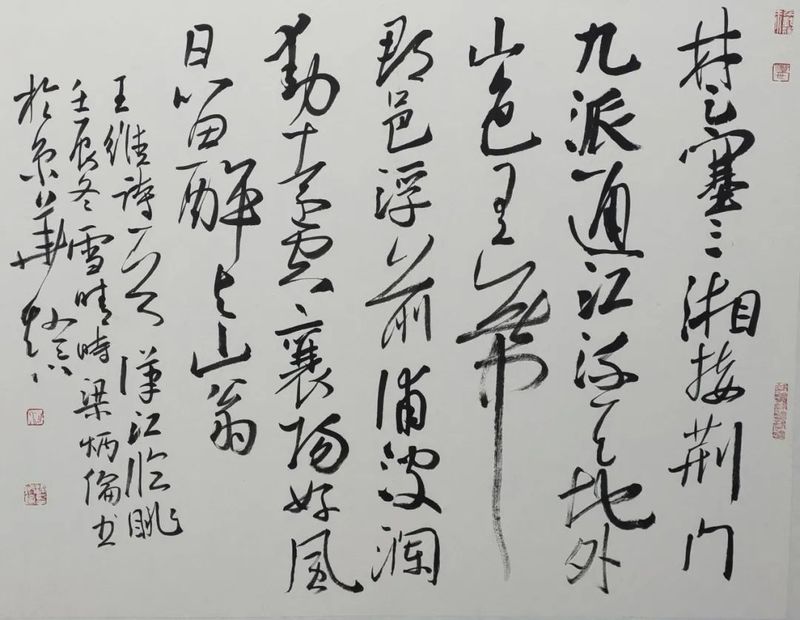 楚塞三湘接荆门
九派通江流天地外
山色有无中
郡邑浮前浦波澜
動远空襄阳好風
日留醉与山翁
王维诗一首 汉江临眺
壬辰冬雪晴時梁炳倫书
於京華